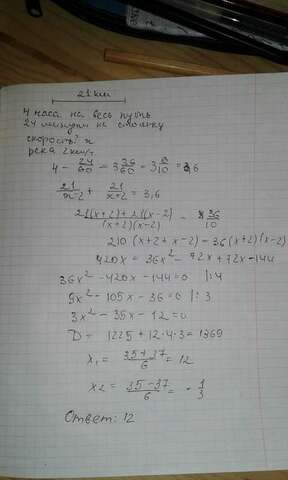 21 км
4 часа на весь путь
24 минуты на стоянку
скорость? x
река 2км/ч
4 - 24/60 = 3 36/60 = 3 6/10 = 3,6
21/x-2 + 21/x+2 = 3,6
21(x+2)+21(x-2)/(x+2)(x-2) = 36/10
210(x+2+x-2)=36(x+2)(x-2)
420x = 36x² - 72x + 72x - 144
36x² - 420x - 144 = 0 | :4
9x² - 105x - 36 = 0 | : 3
3x² - 35x - 12 = 0
D = 1225 + 12·4·3 = 1369
x₁ = 35+37/6 = 12
x2 = 35-37/6 = - 1/3
Ответ: 12